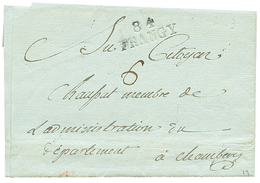 84
FRANGY
Au Citoyen
6
Chaspat membre de
L'administration du
département
à Chambery